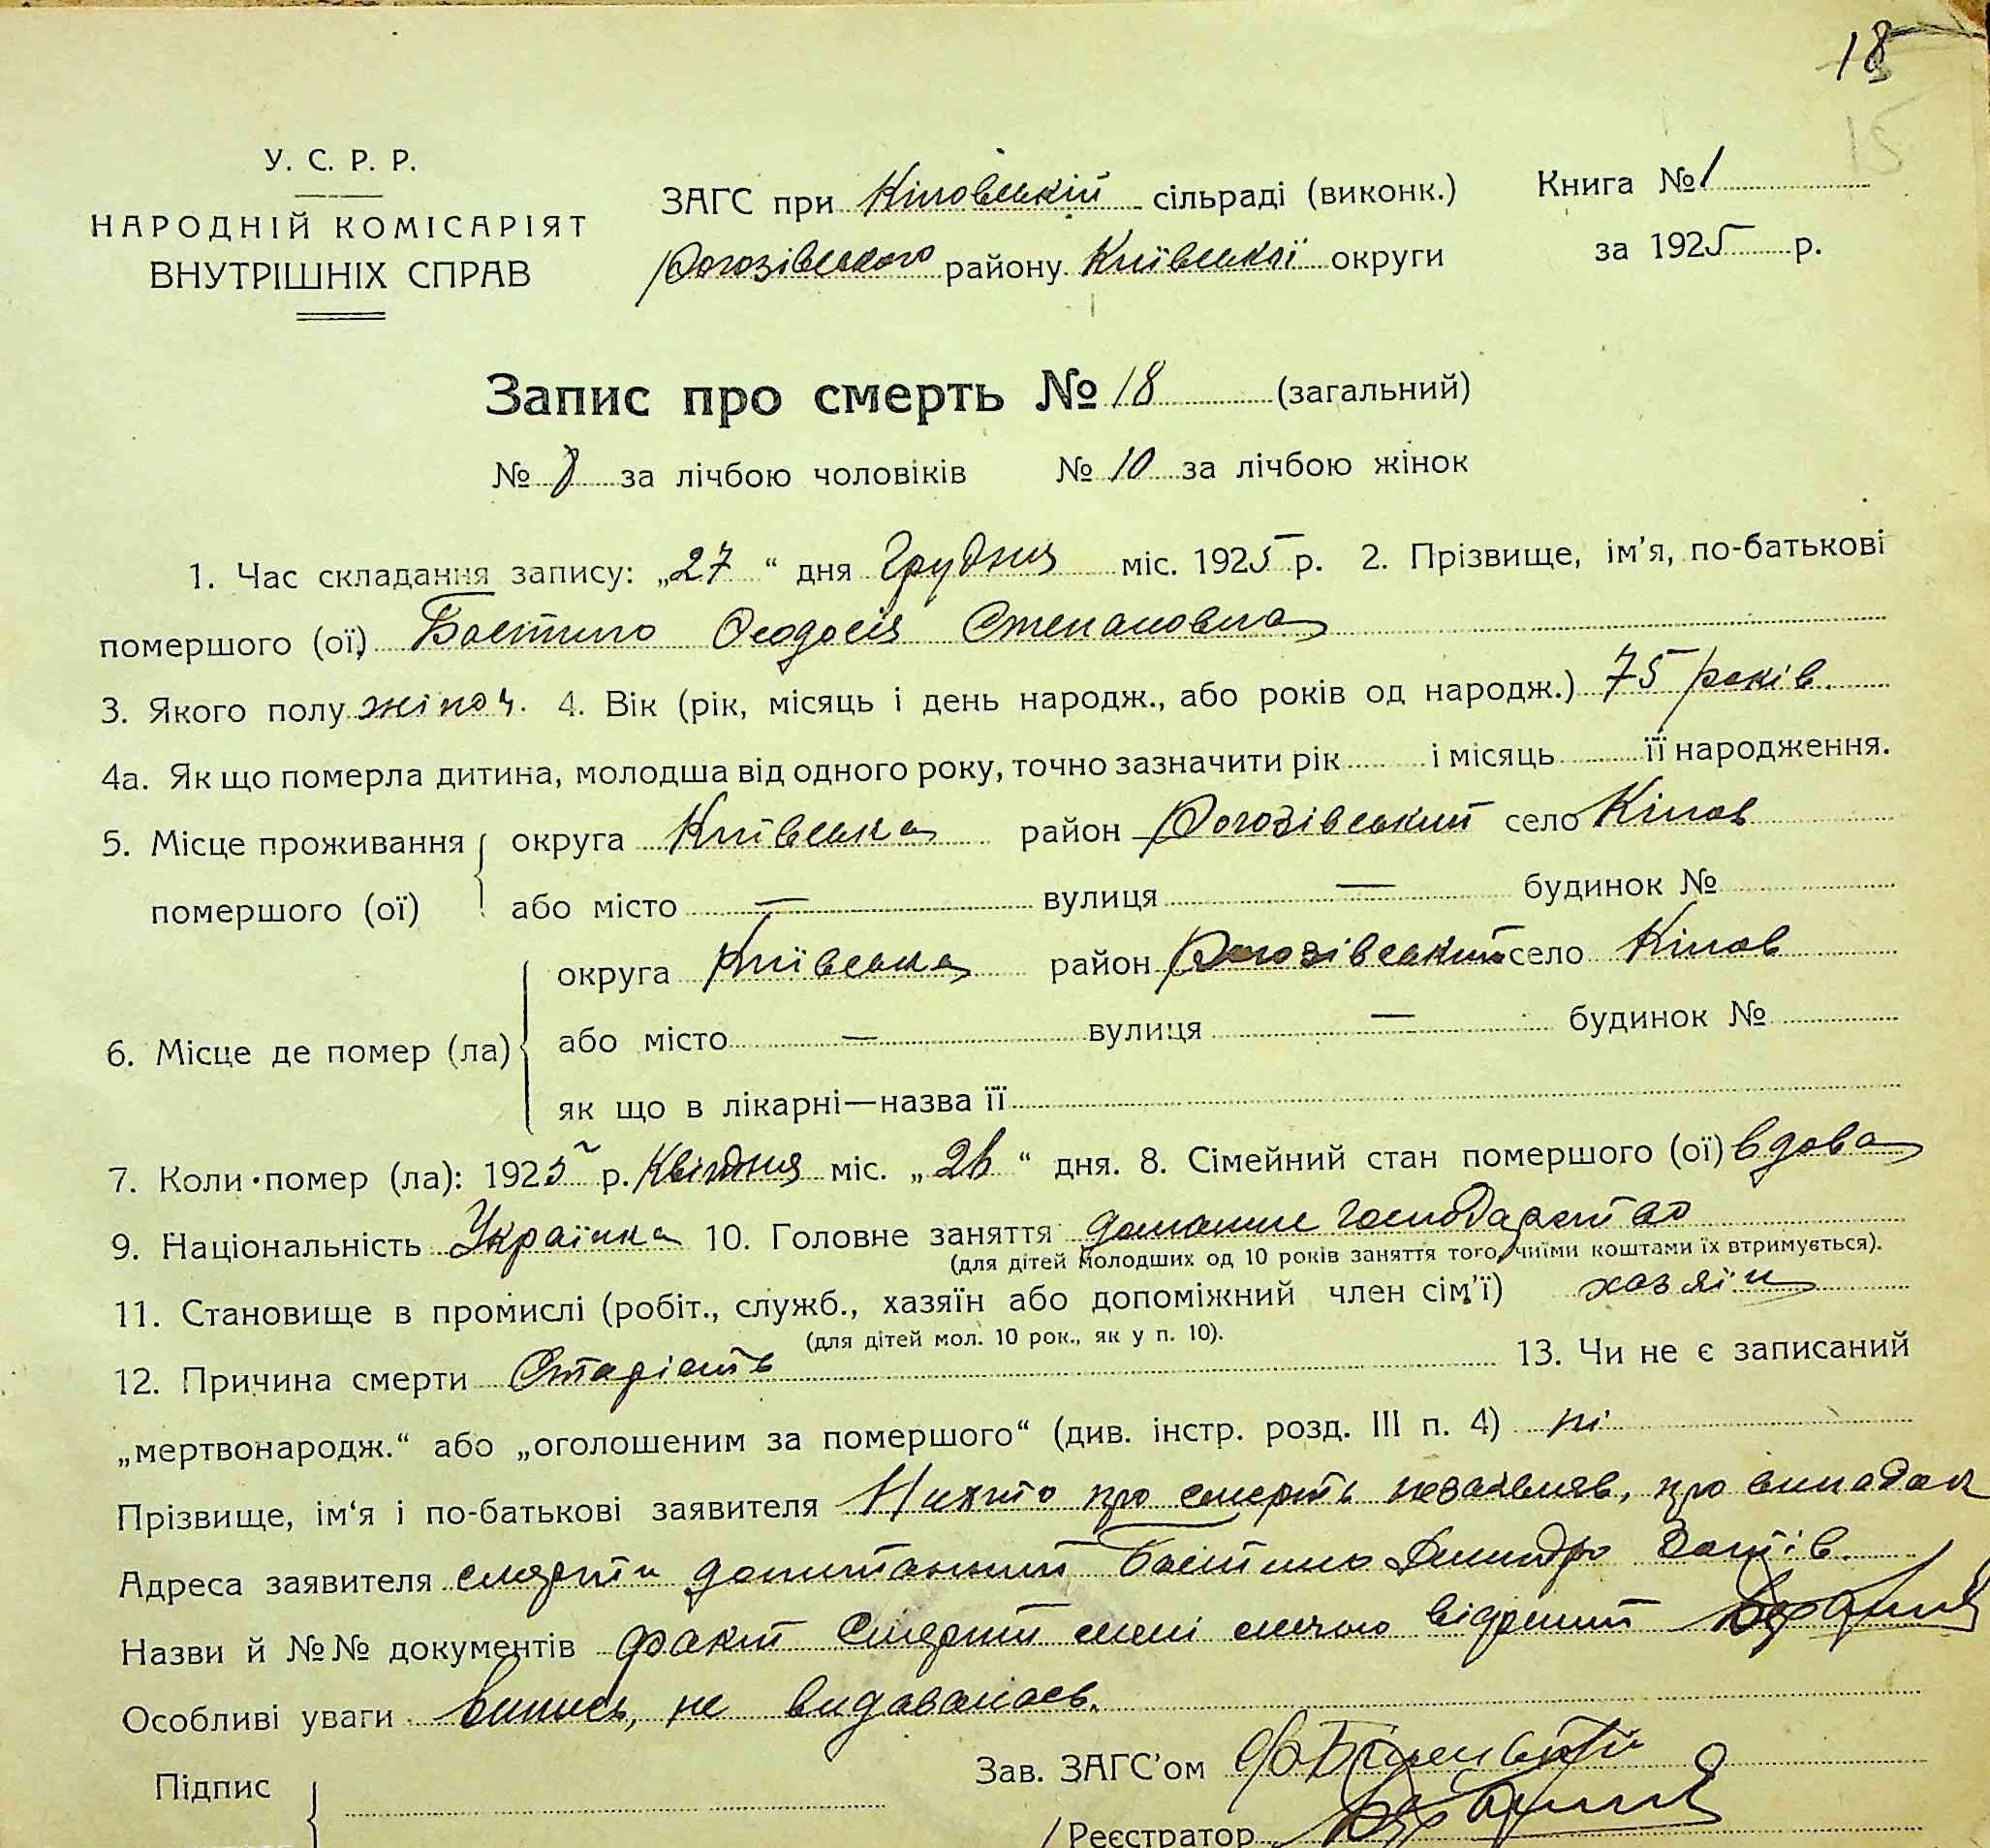 18
15
У. С. Р. Р.
НАРОДНІЙ КОМІСАРІЯТ
ВНУТРІШНІХ СПРАВ
ЗАГС при Кіловській сільраді (виконк.)
Рогозівського району Київської округи
Книга № 1
за 1925 р.
Запис про смерть № 18 (загальний)
№ 8 за лічбою чоловіків № 10 за лічбою жінок
1. Час складання запису: „27“ дня Грудня міс. 1925 р. 2. Прізвище, ім'я, по-батькові
помершого (ої) Феодосія Степановна
3. Якого полу жіноч. 4. Вік (рік, місяць і день народж., або років од народж.) 75 років.
4а. Як що померла дитина, молодша від одного року, точно зазначити рік і місяць її народження.
5. Місце проживання округа Київська район Рогозівський село Кілов
помершого (ої) або місто — вулиця — будинок №
округа Київська район Рогозівський село Кілов
6. Місце де помер (ла) або місто — вулиця — будинок №
як що в лікарні—назва її
7. Коли помер (ла): 1925 р. Квітня міс. „26“ дня. 8. Сімейний стан помершого (ої) вдова
9. Національність Українка 10. Головне заняття домашнє господарство
(для дітей молодших од 10 років заняття того, чиїми коштами їх втримується).
11. Становище в промислі (робіт., служб., хазяїн або допоміжний член сім'ї) хазяїн
(для дітей мол. 10 рок., як у п. 10).
12. Причина смерти Старість 13. Чи не є записаний
„мертвонародж.“ або „оголошеним за помершого“ (див. інстр. розд. III п. 4) ні
Прізвище, ім'я і по-батькові заявителя Нихто про смерть незаявляв, про випадок
Адреса заявителя смерти допитанний
Назви й №№ документів факт смерти
Особливі уваги Випись, не видавалась.
Підпис
Зав. ЗАГС'ом
Реєстратор